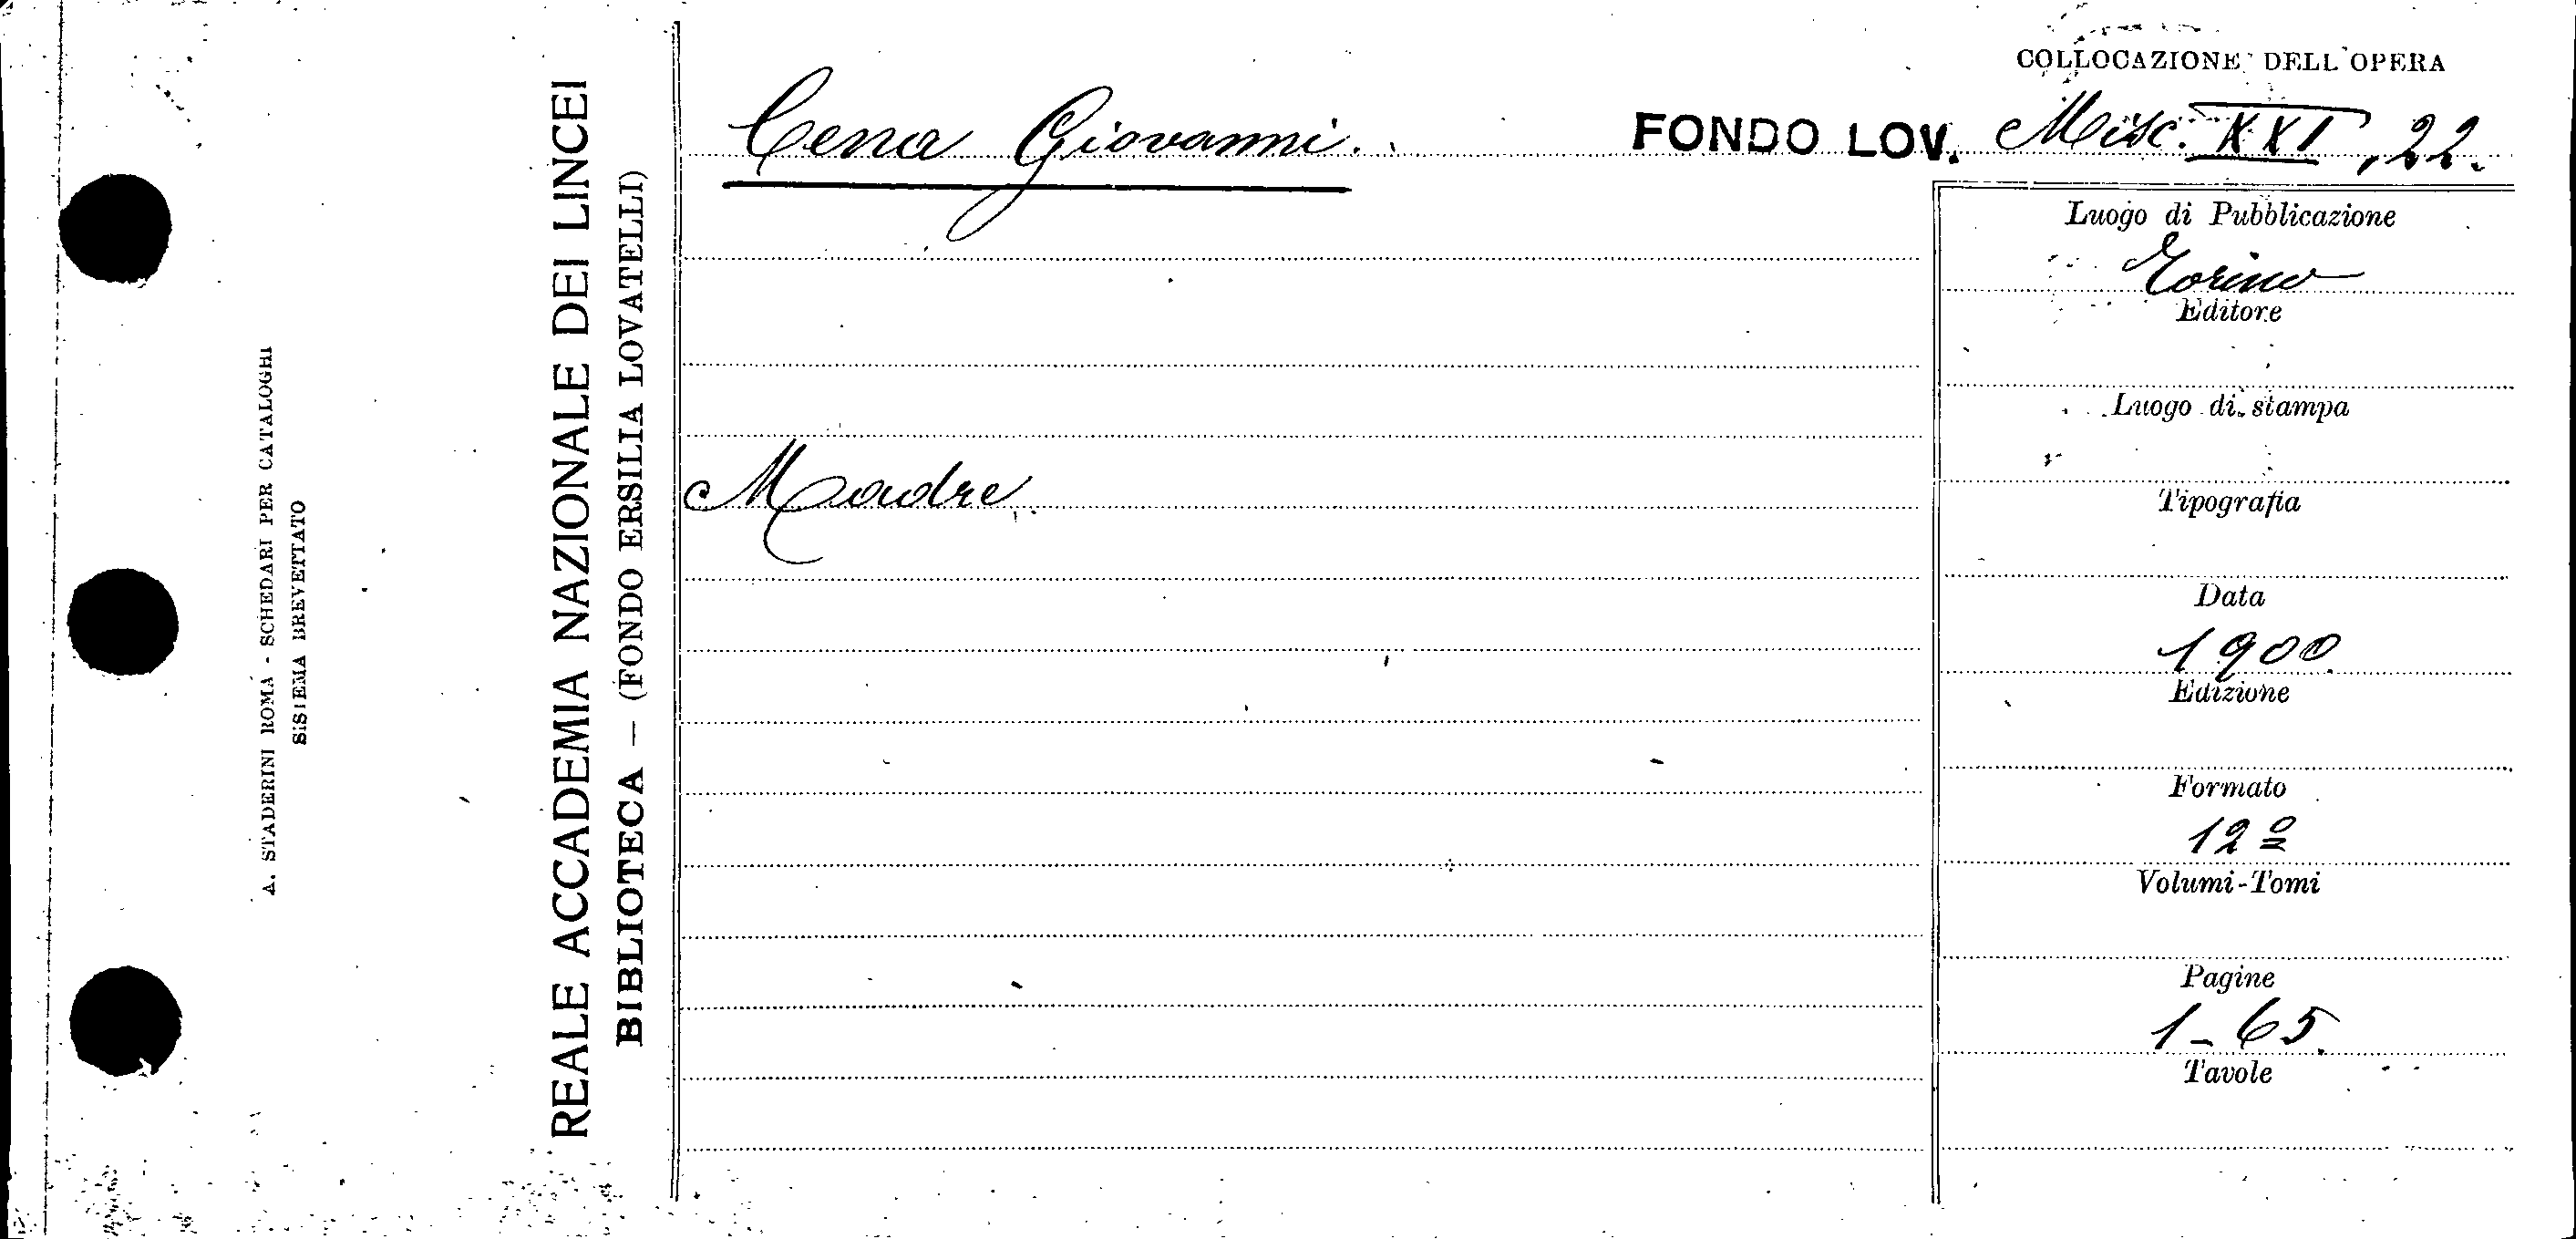 A. STADERINI ROMA - SCHEDARI PER CATALOGHI
SISTEMA BREVETTATO
REALE ACCADEMIA NAZIONALE DEI LINCEI
BIBLIOTECA — (FONDO ERSILIA LOVATELLI)
COLLOCAZIONE DELL'OPERA
Cena Giovanni. FONDO LOV. Misc. XXI, 22.
Luogo di Pubblicazione
Torino
Editore
Luogo di stampa
Madre
Tipografia
Data
1900
Edizione
Formato
12º
Volumi-Tomi
Pagine
1-65.
Tavole